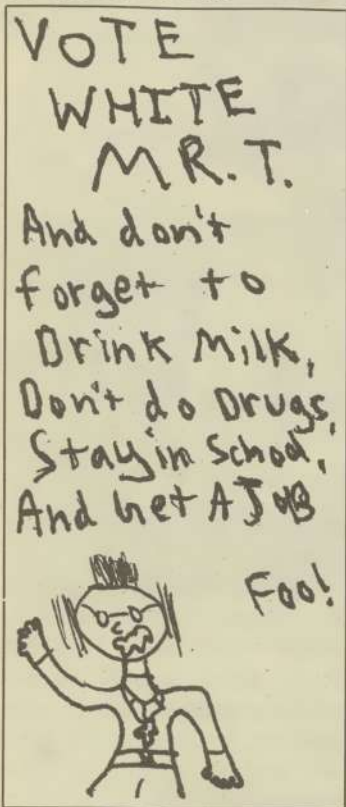 VOTE
WHITE
MR. T.
And don't
forget to
Drink Milk,
Don't do Drugs,
Stay in School,
And Get A JOB
Foo!